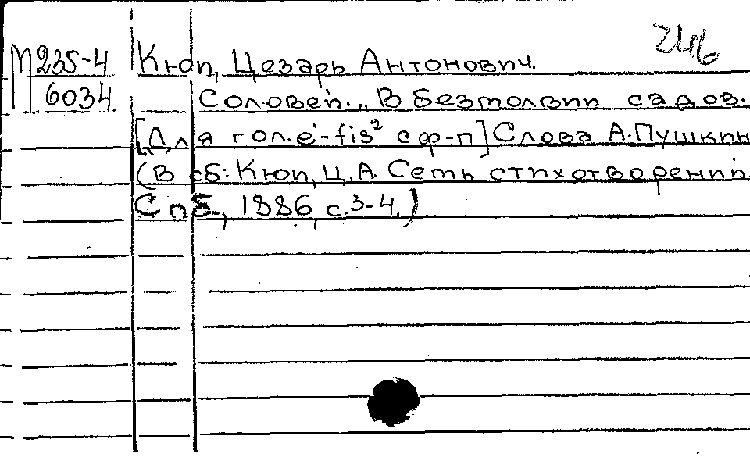 246
М 235-4 Кюи, Цезарь Антонович.
6034 Соловей. „В безмолвии садов.
[Для гол. e¹-fis² с ф-п] Слова А.Пушкин
(В сб: Кюи, Ц.А. Семь стихотворений
Спб., 1886, с.3-4.)